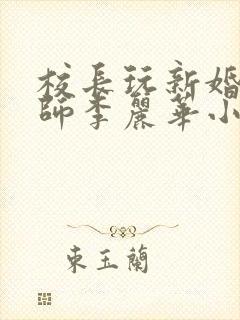 校長玩新婚
師李麗華小
東玉蘭